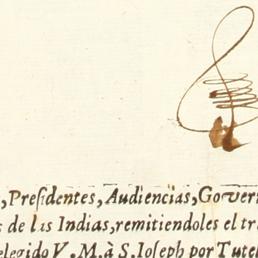 , Presidentes, Audiencias, Gover
de lis Indias, remitiendoles el tr
elegido V. M. à S. Ioseph por Tute